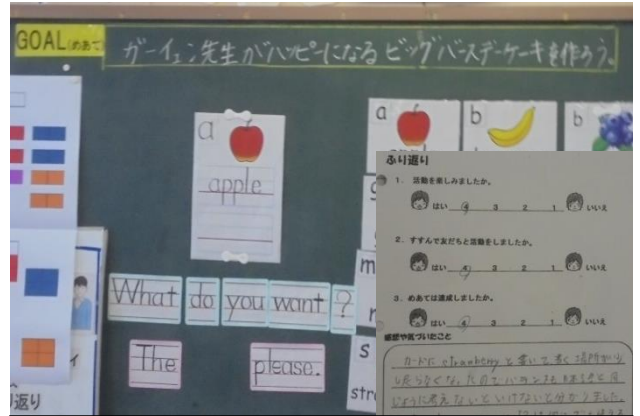 GOAL(めあて)
ガーイェン先生がハッピーになるビッグバースデーケーキを作ろう。
a
apple
a
b
b
What do you want ?
The please.
m
s
返り
ふり返り
1. 活動を楽しみましたか。
はい 4 3 2 1 いいえ
2. すすんで友だちと活動をしましたか。
はい 4 3 2 1 いいえ
3. めあては達成しましたか。
はい 4 3 2 1 いいえ
感想や気づいたこと
カードに strawberry と書いて書く場所が
したらなくなったのでバランスも
ように考えないといけないと分かりました。